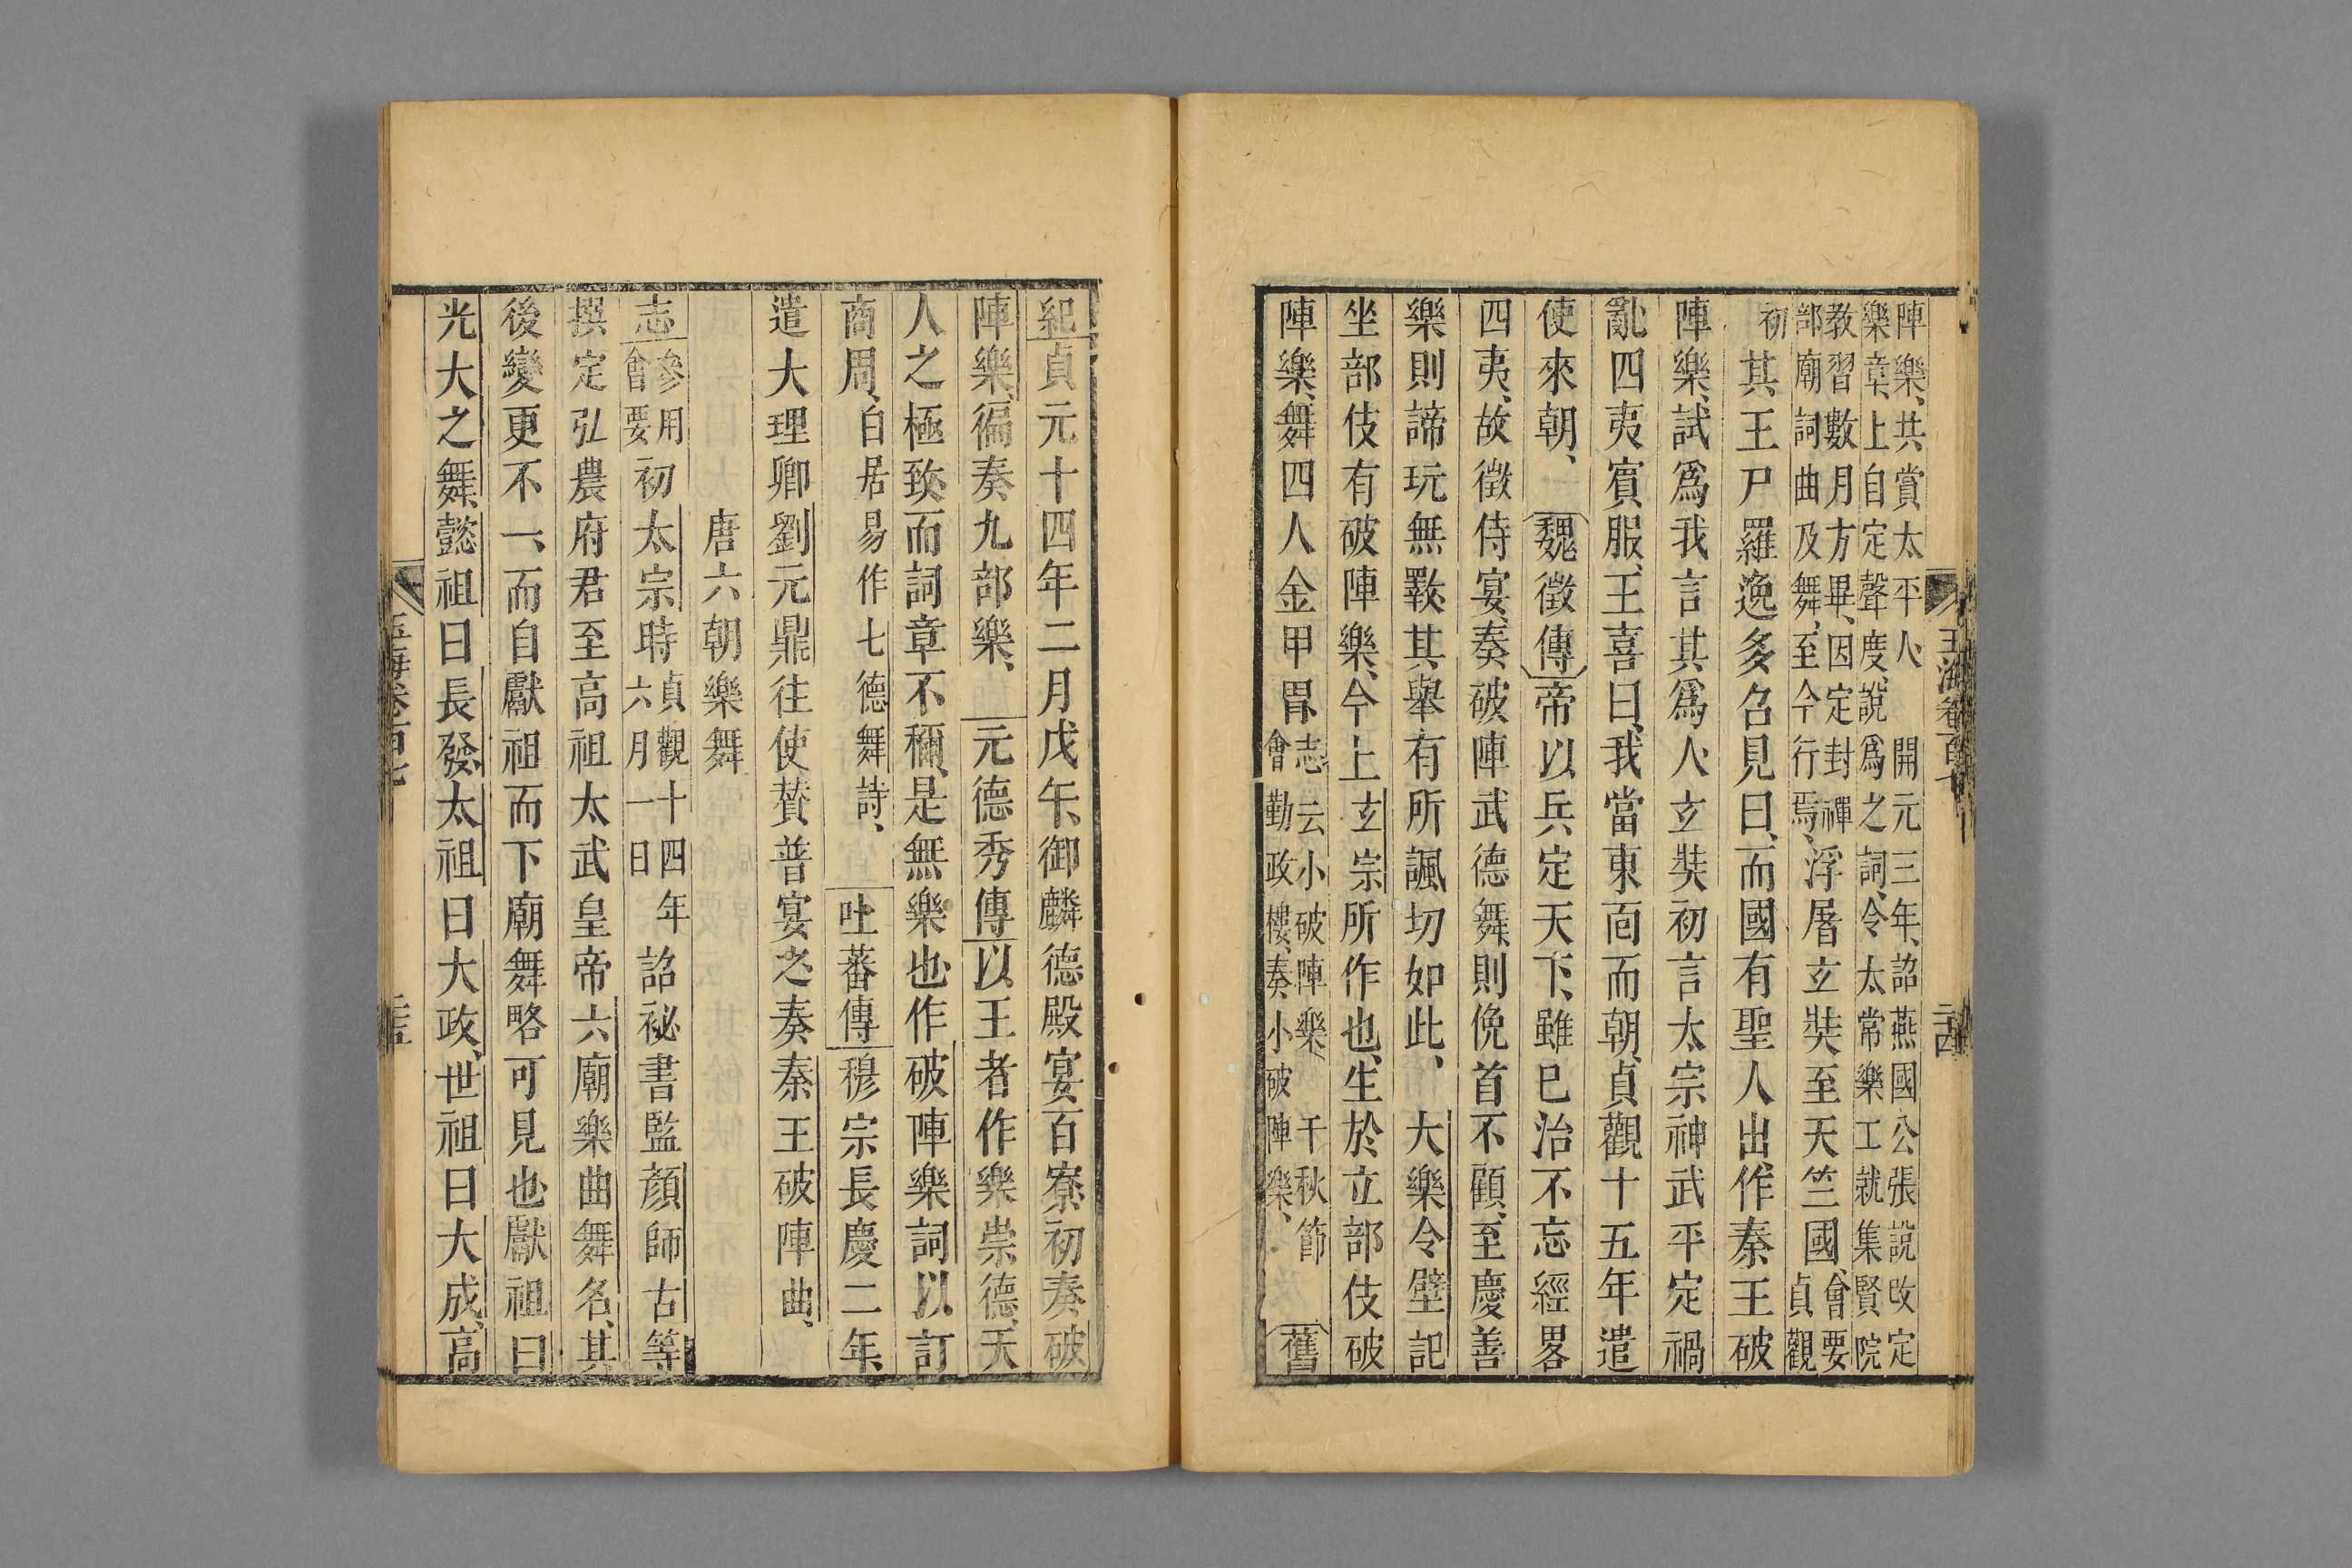 玉海卷一百七
二十四
陣樂共賞太平人 開元三年詔燕國公張說改定
樂章上自定聲度說爲之詞令太常樂工就集賢院
教習數月方畢因定封禪
部廟詞曲及舞至今行焉浮屠玄奘至天竺國會要
貞觀
初其王尸羅逸多召見曰而國有聖人出作秦王破
陣樂試爲我言其爲人玄奘初言太宗神武平定禍
亂四夷賓服王喜曰我當東面而朝貞觀十五年遣
使來朝 魏徵傳帝以兵定天下雖已治不忘經畧
四夷故徵侍宴奏破陣武德舞則俛首不顧至慶善
樂則諦玩無斁其舉有所諷切如此 大樂令壁記
坐部伎有破陣樂今上玄宗所作也生於立部伎破
陣樂舞四人金甲胄志云小破陣樂 千秋節
會勤政樓奏小破陣樂 舊
紀貞元十四年二月戊午御麟德殿宴百寮初奏破
陣樂徧奏九部樂 元德秀傳以王者作樂崇德天
人之極致而詞章不稱是無樂也作破陣樂詞以訂
商周白居易作七德舞詩 吐蕃傳穆宗長慶二年
遣大理卿劉元鼎往使贊普宴之奏秦王破陣曲
唐六朝樂舞
志參用
會要初太宗時貞觀十四年
六月一日詔祕書監顏師古等
撰定弘農府君至高祖太武皇帝六廟樂曲舞名其
後變更不一而自獻祖而下廟舞略可見也獻祖曰
光大之舞懿祖曰長發太祖曰大政世祖曰大成高
玉海卷百七
二十五